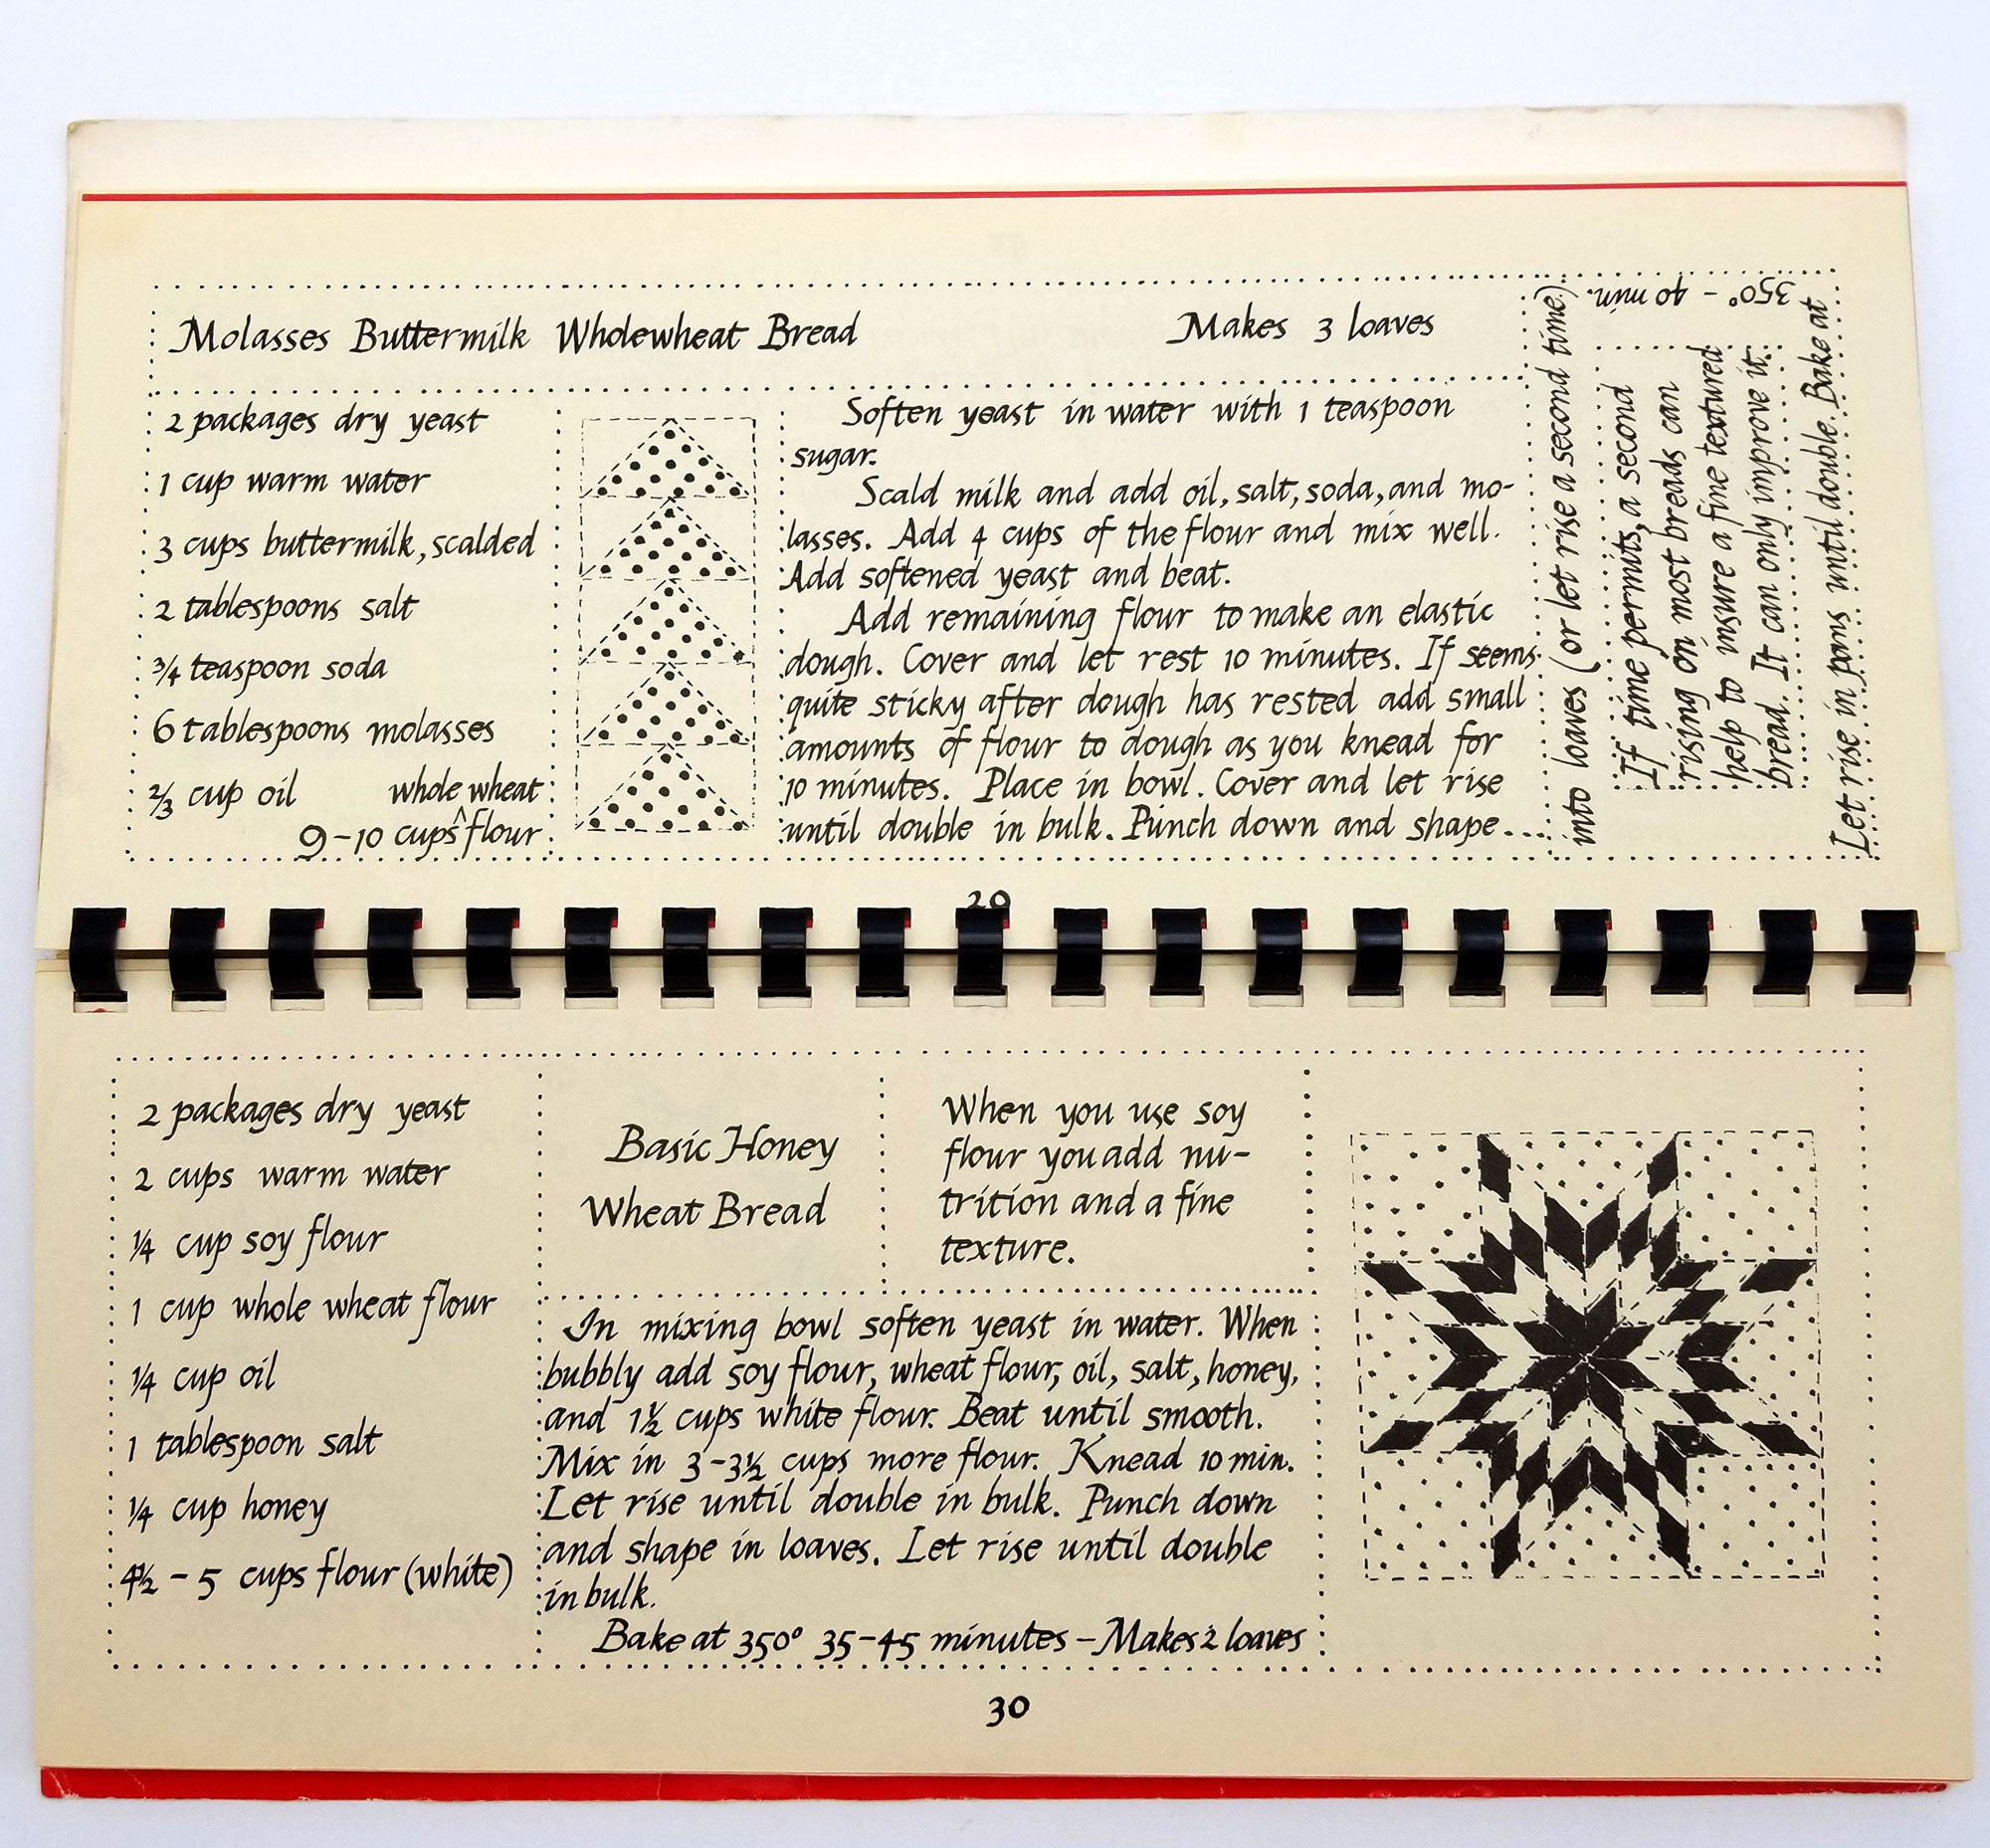 Molasses Buttermilk Wholewheat Bread
Makes 3 loaves
2 packages dry yeast
1 cup warm water
3 cups buttermilk, scalded
2 tablespoons salt
3/4 teaspoon soda
6 tablespoons molasses
2/3 cup oil
whole wheat
9-10 cups^flour
Soften yeast in water with 1 teaspoon
sugar.
Scald milk and add oil, salt, soda, and mo-
lasses. Add 4 cups of the flour and mix well.
Add softened yeast and beat.
Add remaining flour to make an elastic
dough. Cover and let rest 10 minutes. If seems
quite sticky after dough has rested add small
amounts of flour to dough as you knead for
10 minutes. Place in bowl. Cover and let rise
until double in bulk. Punch down and shape...
into loaves (or let rise a second time).
If time permits, a second
rising on most breads can
help to insure a fine textured
bread. It can only improve it.
Let rise in pans until double. Bake at
350° - 40 min.
2 packages dry yeast
2 cups warm water
1/4 cup soy flour
1 cup whole wheat flour
1/4 cup oil
1 tablespoon salt
1/4 cup honey
4 1/2 - 5 cups flour (white)
Basic Honey
Wheat Bread
When you use soy
flour you add nu-
trition and a fine
texture.
In mixing bowl soften yeast in water. When
bubbly add soy flour, wheat flour, oil, salt, honey,
and 1 1/2 cups white flour. Beat until smooth.
Mix in 3-3 1/2 cups more flour. Knead 10 min.
Let rise until double in bulk. Punch down
and shape in loaves. Let rise until double
in bulk.
Bake at 350° 35-45 minutes - Makes 2 loaves
30